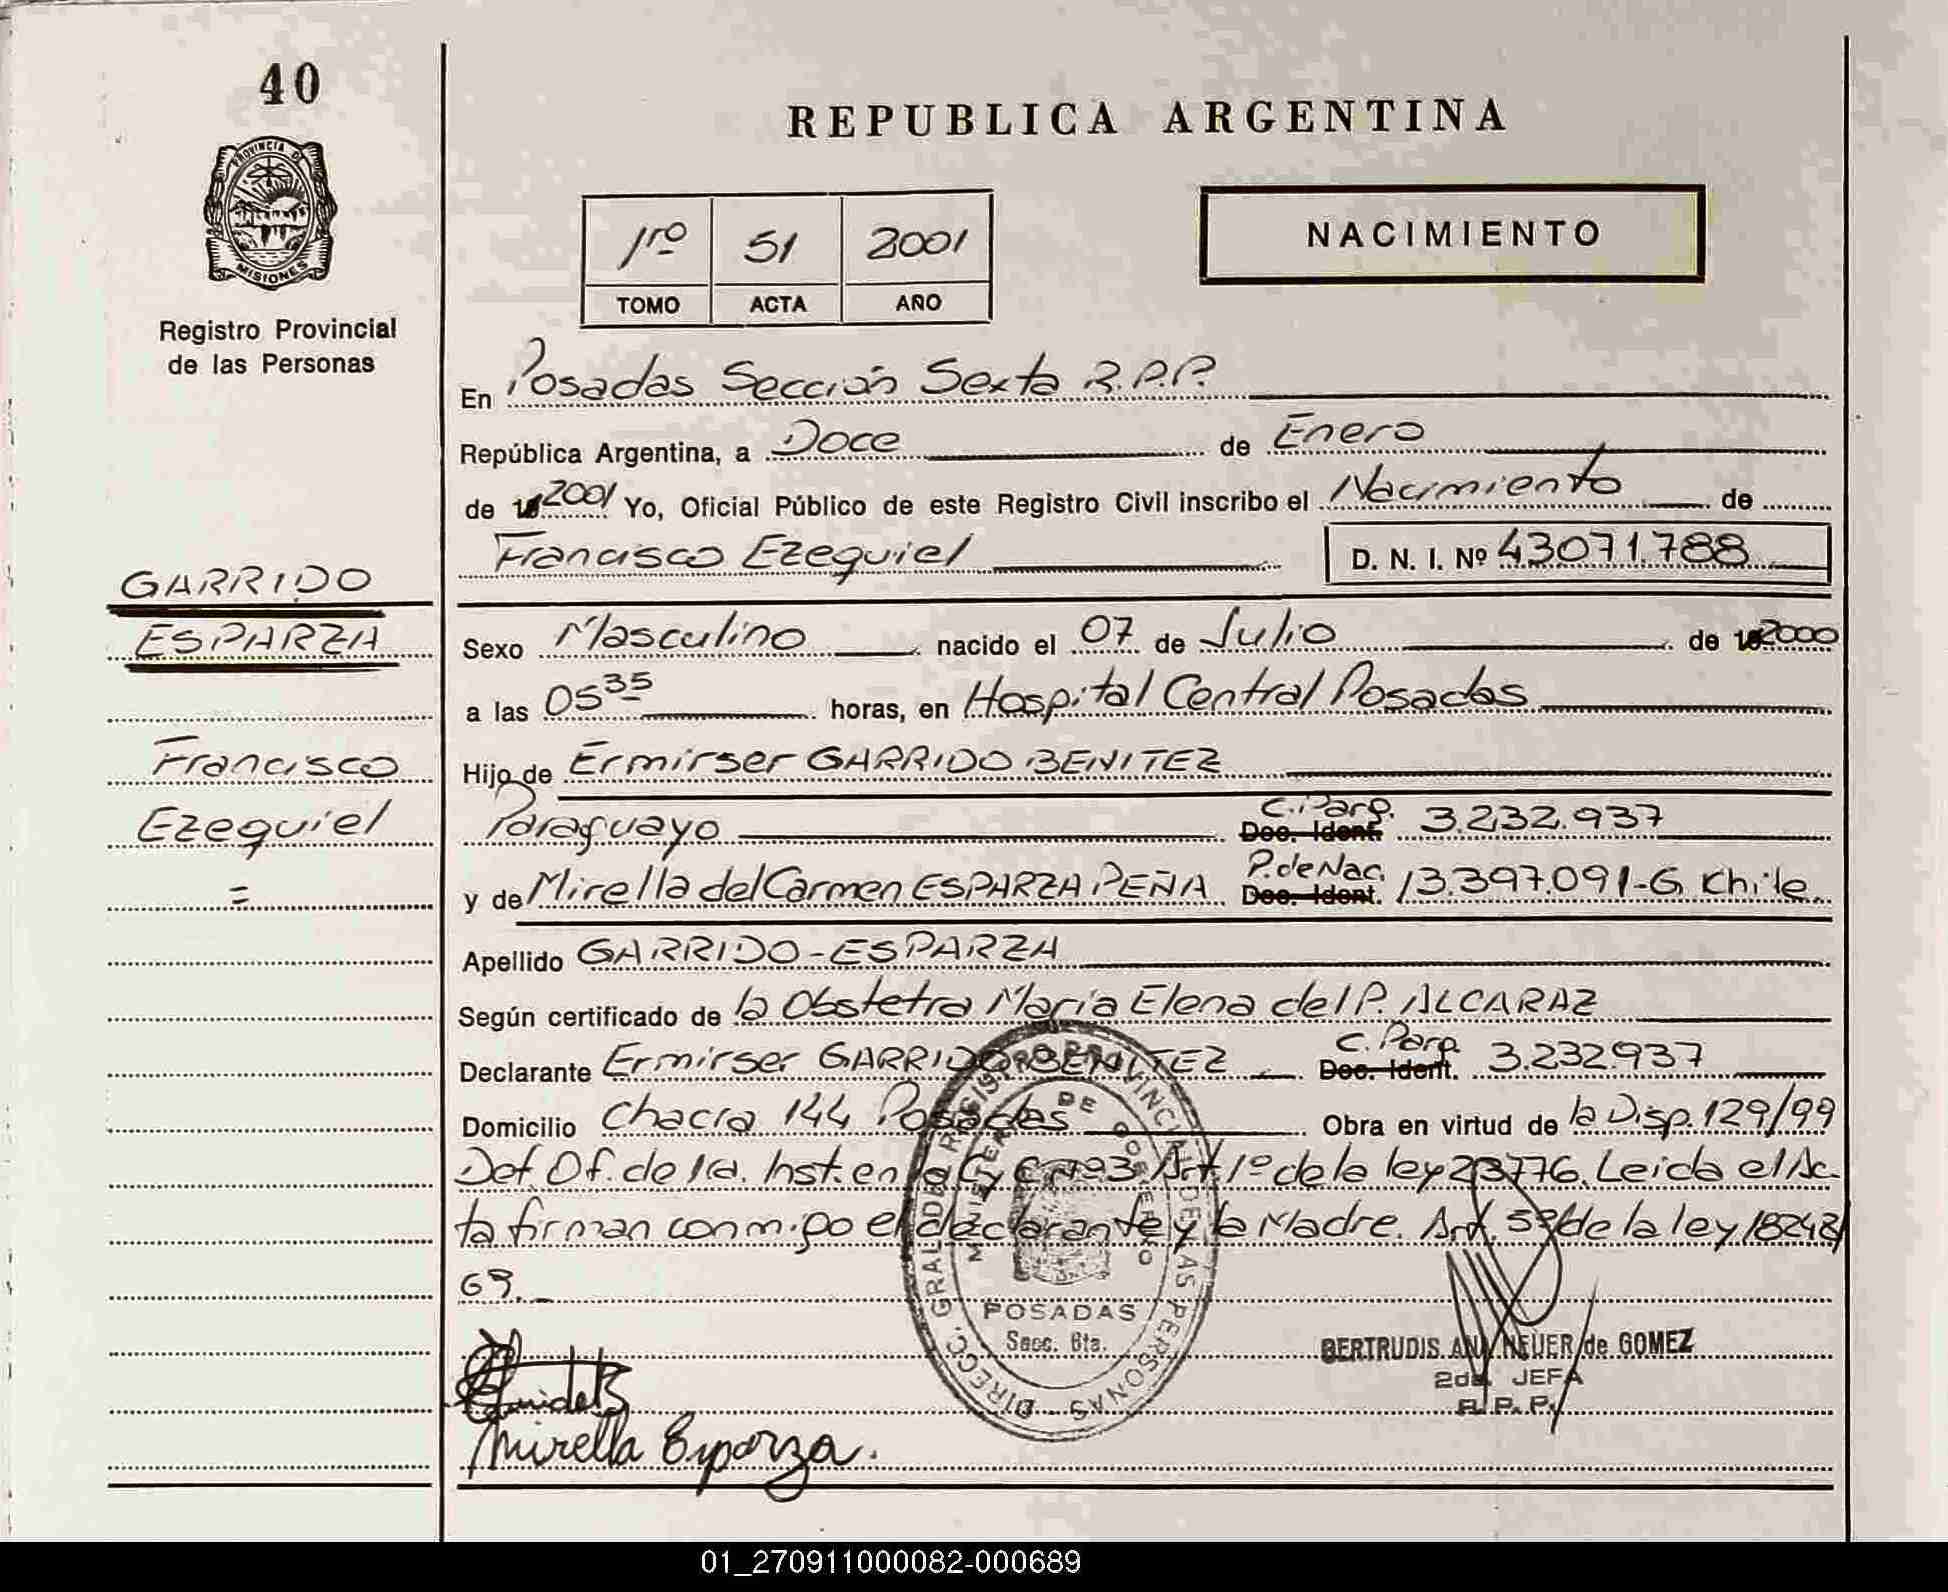 40
PROVINCIA DE
MISIONES
Registro Provincial
de las Personas
REPUBLICA ARGENTINA
1ro 51 2001
TOMO ACTA AÑO
NACIMIENTO
En Posadas Sección Sexta R.P.P.
República Argentina, a Doce de Enero
de 2001 Yo, Oficial Público de este Registro Civil inscribo el Nacimiento de
Francisco Ezequiel D. N. I. Nº 43071.788
GARRIDO
ESPARZA
Francisco
Ezequiel
=
Sexo Masculino nacido el 07 de Julio de 2000
a las 05 35 horas, en Hospital Central Posadas
Hijo de Ermirser GARRIDO BENITEZ
Paraguayo C. Parg. Doc. Ident. 3.232.937
y de Mirella del Carmen ESPARZA PEÑA P. de Nac. Doc. Ident. 13.397.091-6 Chile
Apellido GARRIDO-ESPARZA
Según certificado de la Obstetra María Elena del P. ALCARAZ
Declarante Ermirser GARRIDO BENITEZ C. Parg. Doc. Ident. 3.232.937
Domicilio Chacra 144 Posadas Obra en virtud de la Disp. 129/99
Def. Of. de 1ra. Inst. en lo C y C nº 3 Art 1º de la ley 23776. Leida el Ac-
ta firman conmigo el declarante y la Madre. Art. 5º de la ley 18248/
69.
DIRECC. GRAL. DEL REGISTRO PROVINCIAL DE LAS PERSONAS
MINISTERIO DE GOBIERNO
POSADAS
Secc. 6ta.
BERTRUDIS ANA HEUER de GOMEZ
2da. JEFA
R. P. P.
Mirella Esparza.
01_270911000082-000689